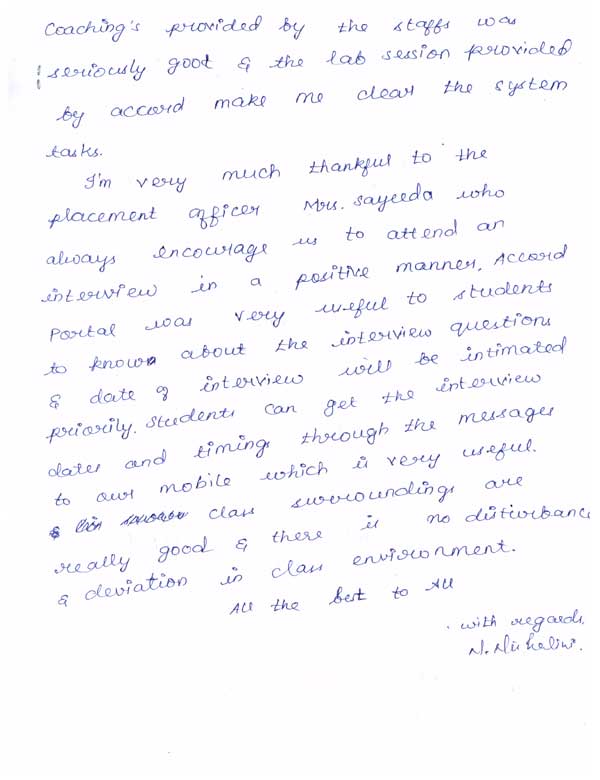 Coaching's provided by the staffs was
seriously good & the lab session provided
by accord make me clear the system
tasks.
I'm very much thankful to the
placement officer Mrs. Sayeeda who
always encourage us to attend an
interview in a positive manner. Accord
Portal was very useful to students
to known about the interview questions
& date of interview will be intimated
priorily. Students can get the interview
dates and timings through the messages
to our mobile which is very useful.
& class surroundings are
really good & there is no disturbance
& deviation in class environment.
All the best to All
with regards,
N.